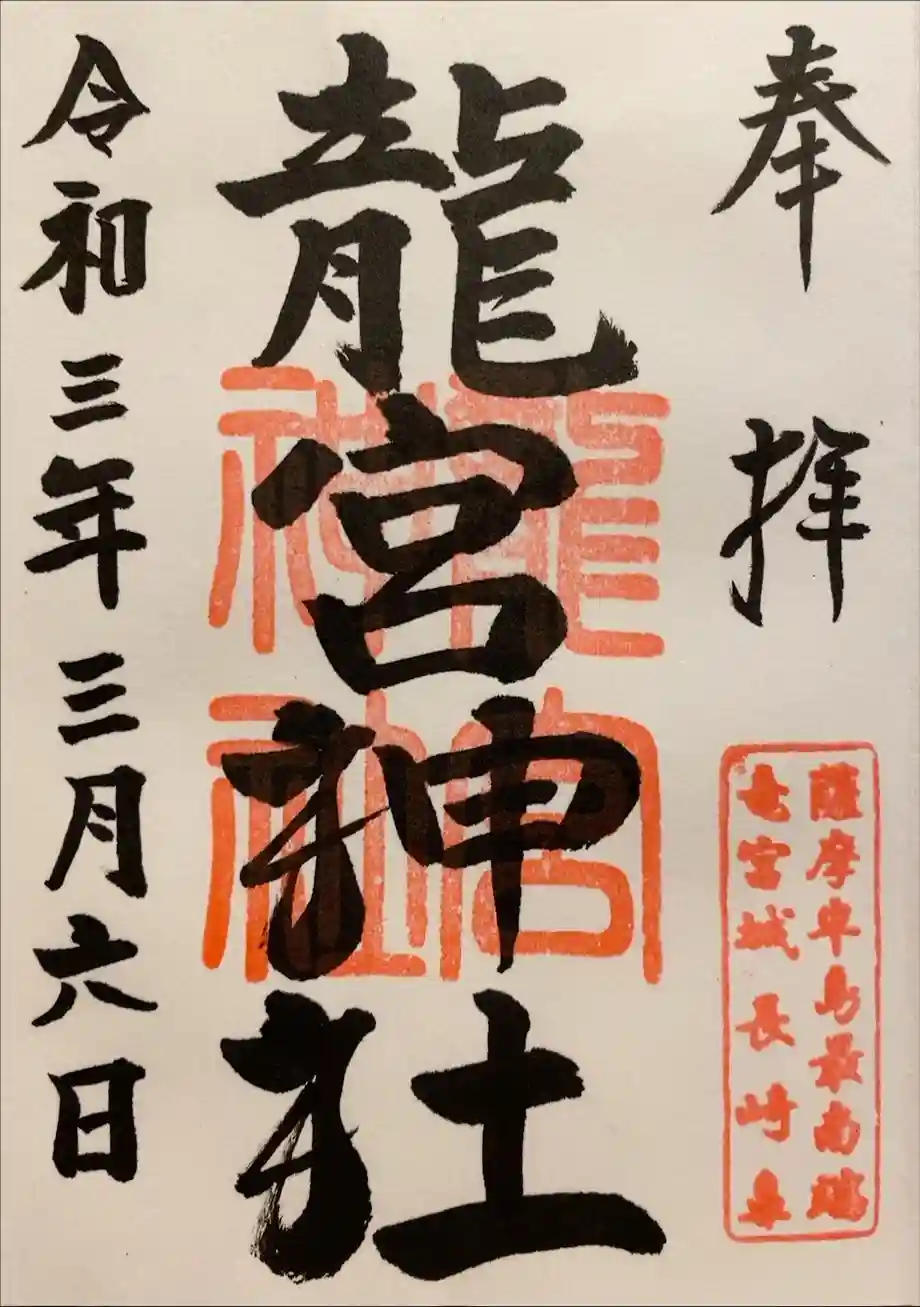 奉拝
薩摩半島最南端
竜宮城長崎鼻
龍宮神社
龍宮
神社
令和三年三月六日